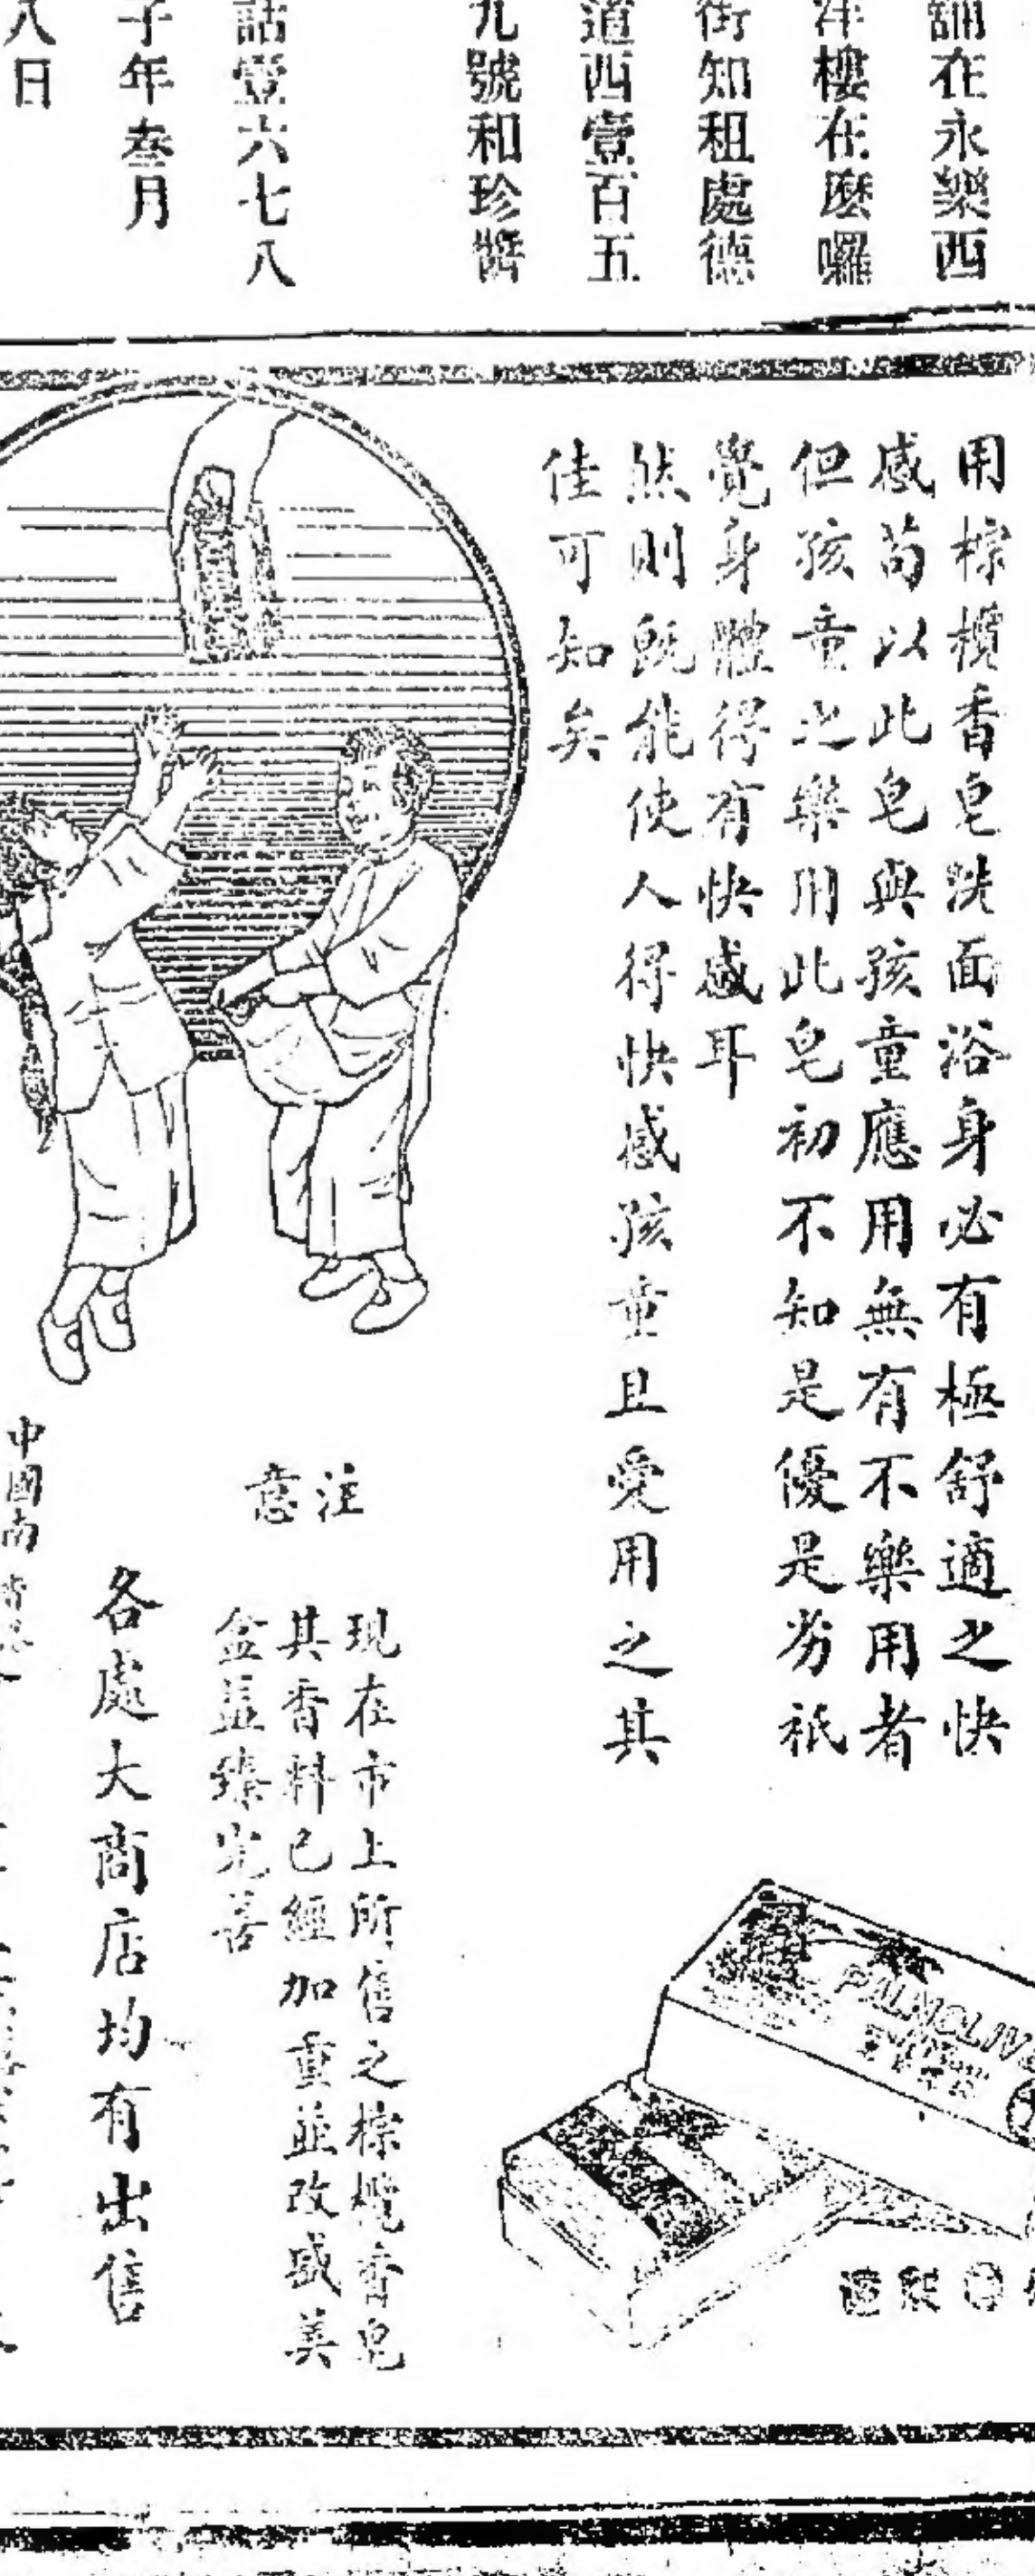 舖在永樂西
洋樓在麼囉
街知租處德
道西壹百五
九號和珍醬
話壹六七八
子年叁月
八日
用棕欖香皂洗面浴身必有極舒適之快
感苟以此皂與孩童應用無有不樂用者
但孩童之樂用此皂初不知是優是劣祇
覺身體得有快感耳
然則既能使人得快感孩童且愛用之其
佳可知矣
PALMOLIVE
注意
現在市上所售之棕欖香皂
其香料已經加重並改盛美
盒益臻完善
各處大商店均有出售
中國南